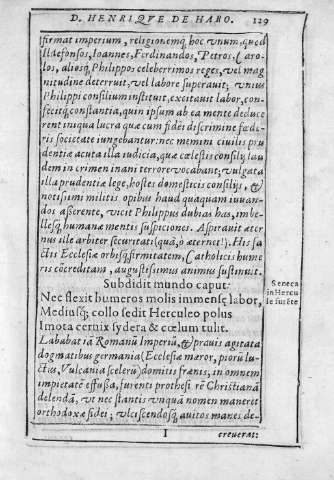 D. HENRIQVE DE HARO. 129
firmat imperium, religionemq́; hoc vnum, quod
Ildefonsos, Ioannes, Ferdinandos, Petros, Caro-
los, aliosq́; Philippos celeberrimos reges, vel mag
nitudine deterruit, vel labore superauit; vnius
Philippi consilium instituit, excitauit labor, con-
fecitq́; constantia, quin ipsum ab ea mente deduce
rent iniqua lucra quæ cum fidei discrimine fœde-
ris societate iungebantur. nec memini ciuilis pru
dentiæ acuta illa iudicia, quæ cælestis consilij lau
dem in crimen inani terrore vocabant; vulgata
illa prudentiæ lege, hostes domesticis consilijs, &
notissimi militis opibus haud quaquam iuuan-
dos asserente, vicit Philippus dubias has, imbe-
llesq́; humanæ mentis suspiciones. Aspirauit æter
nus ille arbiter securitati (quâ, ò æterne!). His sa
ctis Ecclesiæ orbisq́; firmitatem, Catholicis hume
ris cõcreditam, augustissimus animus sustinuit.
Subdidit mundo caput
Nec flexit humeros molis immensę labor,
Mediusq́; collo sedit Herculeo polus
Imota ceruix sydera & cœlum tulit.
Seneca
in Hercu
le furēte
Lababat iã Romanũ Imperiũ, & prauis agitata
dogmatibus germania (Ecclesiæ mæror, piorũ lu-
ctus, Vulcania scelerũ) domitis frænis, in omnem
impietatẽ effusa, furenti prothesi rẽ Christianã
delendã, vt nec stantis vnquã nomen maneret
orthodoxæ fidei; vlciscendosq́; auitos manes de-
I creuerat: